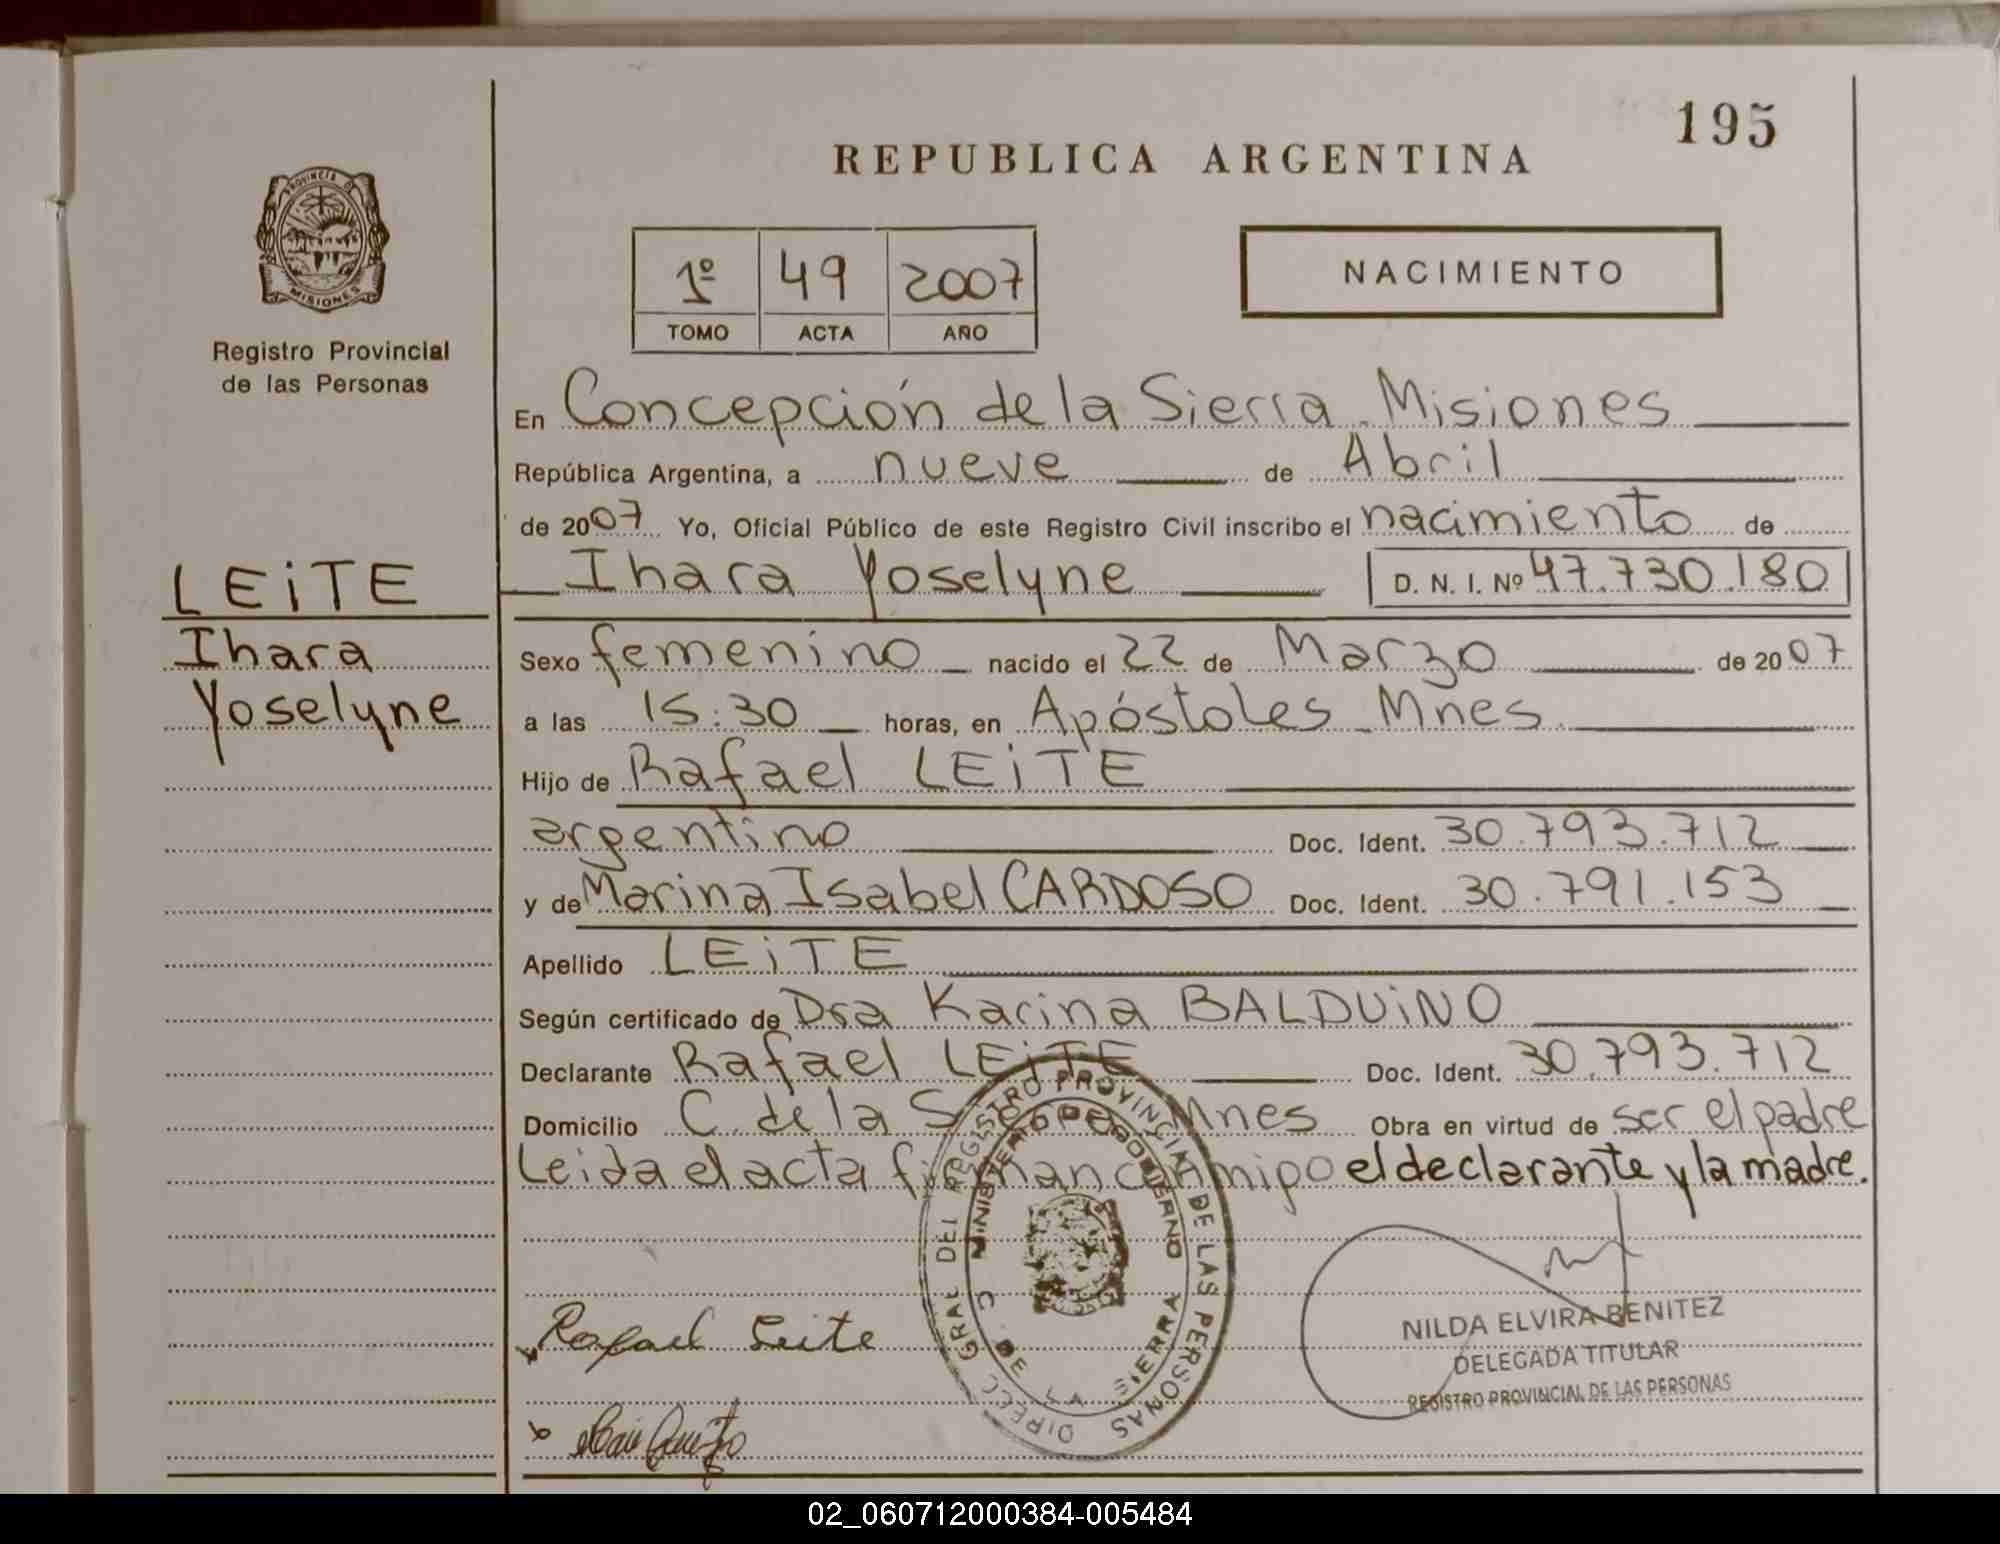 195
REPUBLICA ARGENTINA
PROVINCIA DE
MISIONES
Registro Provincial
de las Personas
1º 49 2007
TOMO ACTA AÑO
NACIMIENTO
En Concepción de la Sierra. Misiones
República Argentina, a nueve de Abril
de 2007 Yo, Oficial Público de este Registro Civil inscribo el nacimiento de
Ihara Yoselyne D. N. I. Nº 47.730.180
LEiTE
Ihara
Yoselyne
Sexo femenino nacido el 22 de Marzo de 2007
a las 15:30 horas, en Apóstoles Mnes
Hijo de Rafael LEiTE
argentino Doc. Ident. 30.793.712
y de Marina Isabel CARDOSO Doc. Ident. 30.791.153
Apellido LEiTE
Según certificado de Dra Karina BALDUiNO
Declarante Rafael LEiTE Doc. Ident. 30.793.712
Domicilio C. de la S Mnes Obra en virtud de ser el padre
Leida el acta firman conmigo el declarante y la madre.
DIRECC GRAL DEL REGISTRO PROVINCIAL DE LAS PERSONAS
MINISTERIO DE GOBIERNO
C. DE LA SIERRA
Rafael Leite
NILDA ELVIRA BENITEZ
DELEGADA TITULAR
REGISTRO PROVINCIAL DE LAS PERSONAS
02_060712000384-005484